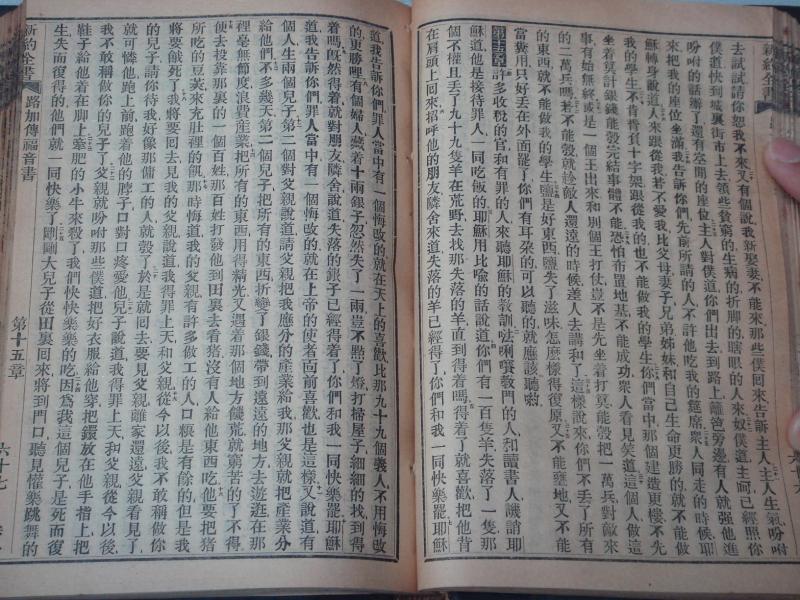 新約全書
去試試請你恕我不來又有個說我新娶妻不能來那些僕回來告訴主人主人生氣吩咐
僕道快到城裏街市上去領些貧窮的生病的折脚的瞎眼的人來奴僕道主呵已經照你
吩咐的話辦了還有空閒的座位主人對僕道你們出去到路上籬笆旁邊有人就强他進
來把我的座位坐滿我告訴你們先前所請的人不許他吃我的筵席衆人同走的時候耶
穌轉身說道人來跟從我若不愛我比父母妻子兄弟姊妹和自己生命更勝的就不能做
我的學生不肯背負十字架跟從我的也不能做我的學生你們當中那個建造東樓不先
坐着算計銀錢能彀完結事體不能恐怕布置地基不能成功衆人看見笑道這個人做這
事有始無終或是一個王出來和別個王打仗豈不是先坐着打算能彀把一萬兵對敵來
的二萬兵嗎若不能彀就趁敵人還遠的時候差人去講和了這樣說來你們不丟了所有
的東西就不能做我的學生鹽是好東西鹽失了滋味怎麼樣得復原又不能壅地又不能
當糞用只好丟在外面罷了你們有耳朶的可以聽的就應該聽喲
第十五章許多收稅的官和有罪的人來聽耶穌的教訓法唎賽教門的人和讀書人譏誚耶
穌道他是接待罪人一同吃飯的耶穌用比喩的話說道你們有一百隻羊失落了一隻那
個不權且丟了九十九隻羊在荒野去找那失落的羊直到得着嗎得着了就喜歡把他背
在肩頭上回來招呼他的朋友隣舍來道失落的羊已經得着了你們和我一同快樂罷耶穌
道我告訴你們罪人當中有一個悔改的就在天上的喜歡比那九十九個義人不用悔改
的更勝哩有個婦人藏着十兩銀子忽然失了一兩豈不點了燈打掃屋子細細的找到得
着嗎旣然得着就對朋友隣舍說道失落的銀子已經得着了你們和我一同快樂罷耶穌
道我告訴你們罪人當中有一個悔改的就在上帝的使者面前喜歡也是這樣又說道有
個人生兩個兒子第二個對父親說道請父親把我應分的產業給我那父親就把產業分
給他們不多幾天第二個兒子把所有的東西折變了銀錢帶到遠遠的地方去遊逛在那
裡毫無節度浪費產業把所有的東西用得精光又遇着那個地方饑荒就窮苦的了不得
便去投靠那裏的一個百姓那百姓打發他到田裏去看猪沒有人給他東西吃他要把猪
所吃的豆莢來充肚裡的餓那時悔道我的父親有許多做工的人口糧是有餘的但是我
將要餓死了我將要回去見我的父親說道我得罪上天和父親從今以後我不敢稱做你
的兒子請你待我好像那傭工的人就彀了於是就回去要見父親離家還遠父親看見了
就可憐他跑上前抱着他的脖子口對口疼愛他兒子說道我得罪上天和父親從今以後
我不敢稱做你的兒子了父親就吩咐那些僕道把好衣服給他穿把鐶放在他手指上把
鞋子給他着在脚上牽肥的小牛來殺了我們快快樂樂的吃因爲我這個兒子是死而復
生失而復得的他們就一同快樂了剛剛大兒子從田裏回來將到門口聽見懽樂跳舞的
新約全書
路加傳福音書
第十五章
六十七